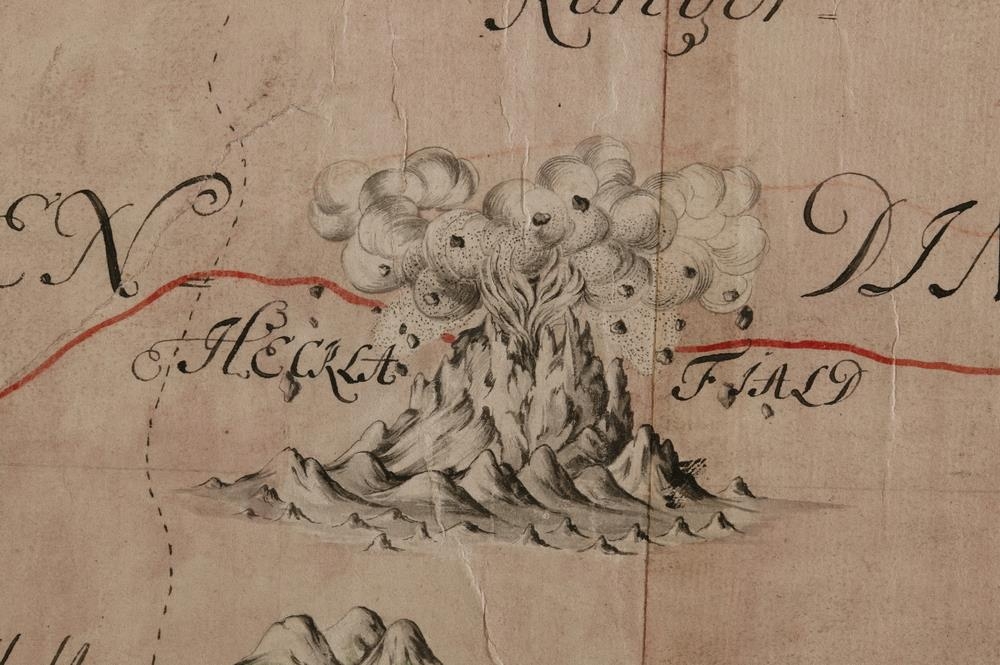 Rangor=
EN DIN
HECKLA FIALD